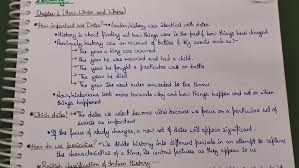 Chapter 1 (How, When and Where)
How important are Dates? → Earlier, history was identical with dates
History is about finding out how things were in the past & how things have changed
Previously history was an account of battles & big events such as:-
The year a king was crowned
The year he was married and had a child
The year he fought a particular war or battle
The year he died
The year the next ruler succeeded to the throne
Now, historians look more towards why and how things happen and not on when
things happened
Which dates? → The dates we select become vital because we focus on a particular set of
events as important
If the focus of study changes, a new set of dates will appear significant
How do we periodise? → We divide history into different periods in an attempt to capture
the characteristics of a time, its central features as they appear to us
British classification of Indian History